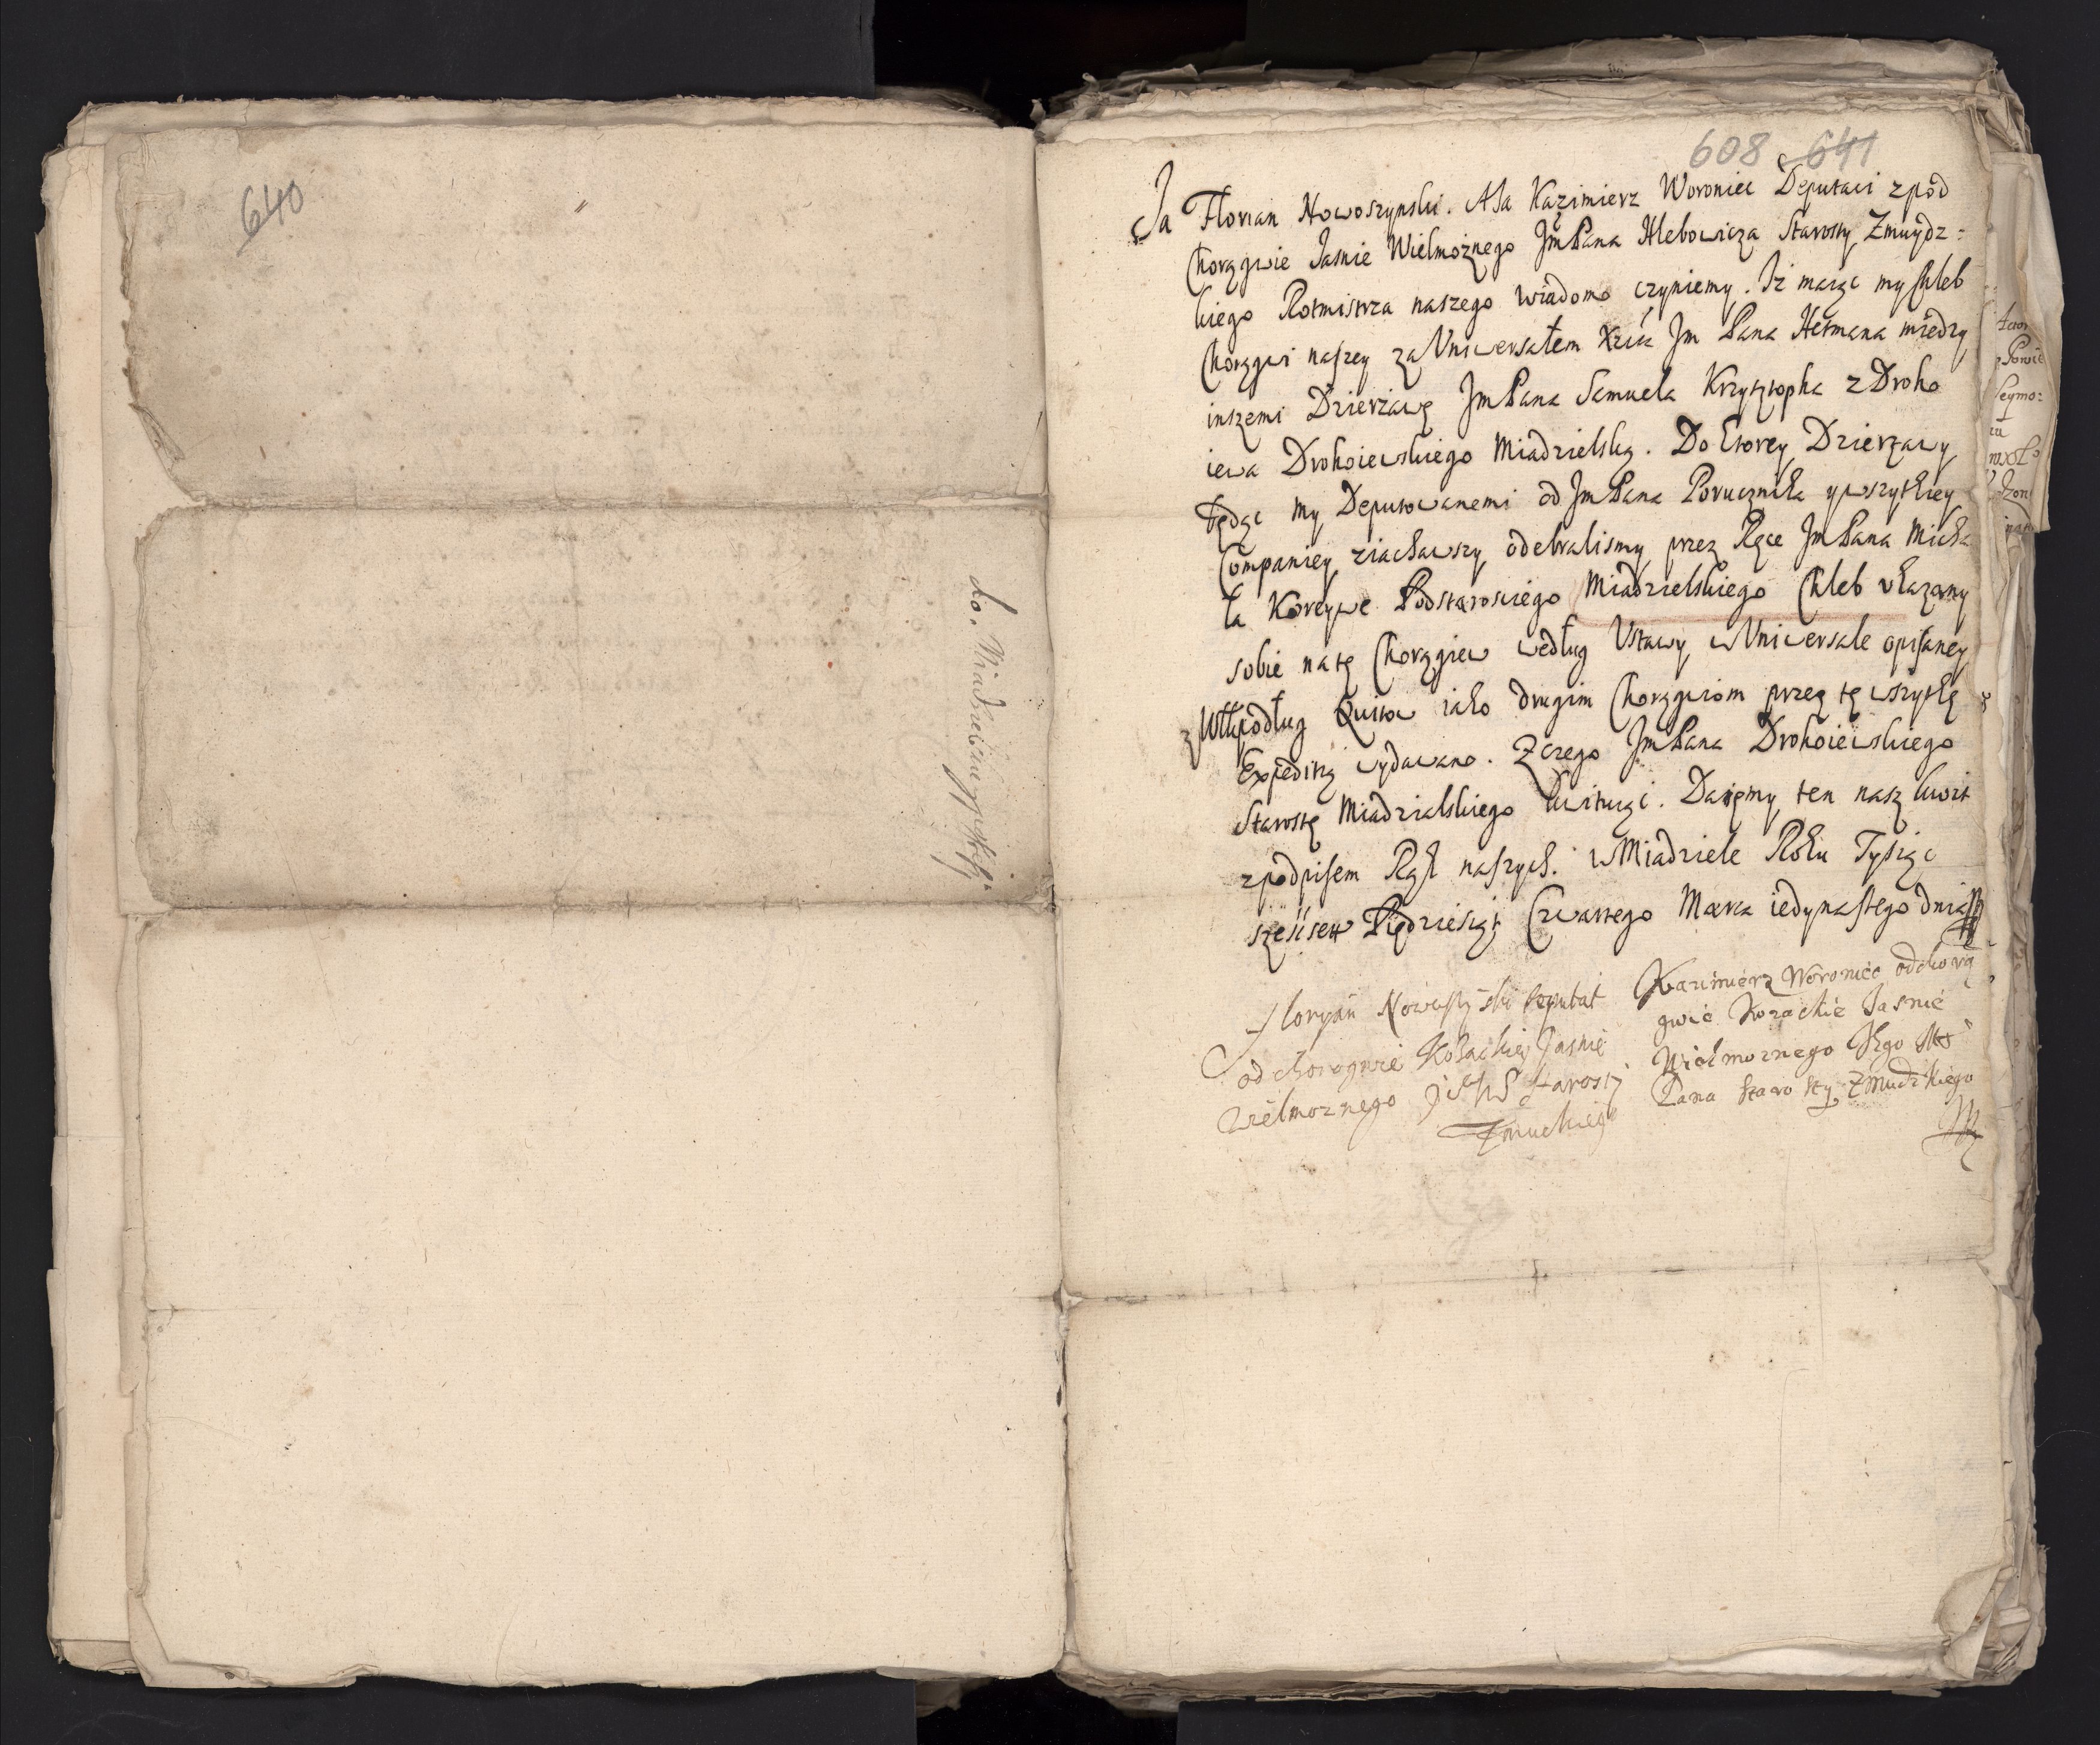 640
do Miadzielu
608 641
Ja Florian Nowoszynski. A Ja Kazimierz Woroniec Deputaci z pod
Chorągwie Jasnie Wielmożnego Jm Pana Hlebowicza Starosty Zmuydz=
kiego Rotmistrza naszego wiadomo czyniemy. Iż maiąc my Chleb
Chorągwi naszey za Vniwersałem Xcia Jm Pana Hetmana miedzy
inszemi Dzierżawę Jm Pana Samuela Krzysztopha z Droho
iewa Drohoiewskiego Miadzielską. Do ktorey Dzierżawy
będąc my Deputowanemi od Jm Pana Porucznika y wszytkiey
Companiey ziachawszy odebralismy przez Ręce Jm Pana Micha
ła Koreywe Podstarosciego Miadzielskiego Chleb vkazany
sobie na tę Chorągiew według Vstawy w Vniwersale opisaney
podług Quitow iako drugim Chorągwiom przez tę wszytkę
Expeditią wydawano. Z czego Jm Pana Drohoiewskiego
Starostę Miadzialskiego kwituąc. Daięmy ten nasz kwit
z podpisem Rąk naszych. w Miadziele Roku Tysiąc
szescset Piędziesiąt Czwartego Marca iedynastego dnia
Floryan Nowoszyński deputat
od chorogwie Kozackiej Jasnie
Wielmoznego Starosty
Zmuckiego
Kazimierz Woroniec od chorą
gwie Kozackie Jasnie
Wielmoznego Jego
Pana Starosty Zmudzkiego